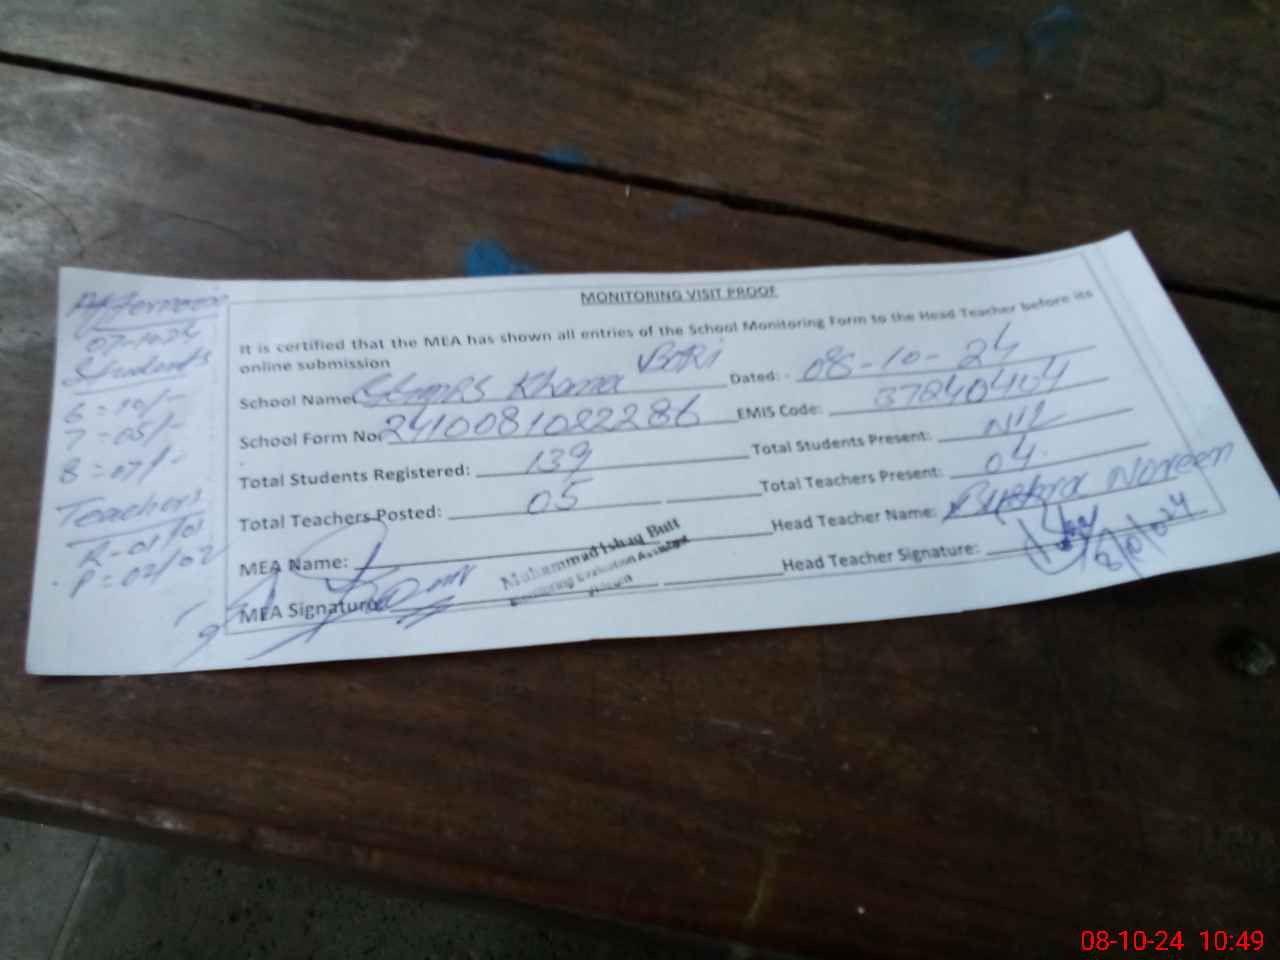 MONITORING VISIT PROOF
It is certified that the MEA has shown all entries of the School Monitoring Form to the Head Teacher before its
online submission
School Name: Khana Dated: 08-10-24
School Form No: 2410081082286 EMIS Code: 37240404
Total Students Registered: 139 Total Students Present: NIL
Total Teachers Posted: 05 Total Teachers Present: 04
MEA Name: Head Teacher Name: Bushra Noreen
Muhammad Ishaq Butt
Monitoring Evaluation Assistant
MEA Signature: Head Teacher Signature:
8/10/2024
Afternoon
07-10-24
Students
6 = 10/-
7 = 05/-
8 = 07/-
Teachers
R-01/01
P=02/02
08-10-24 10:49